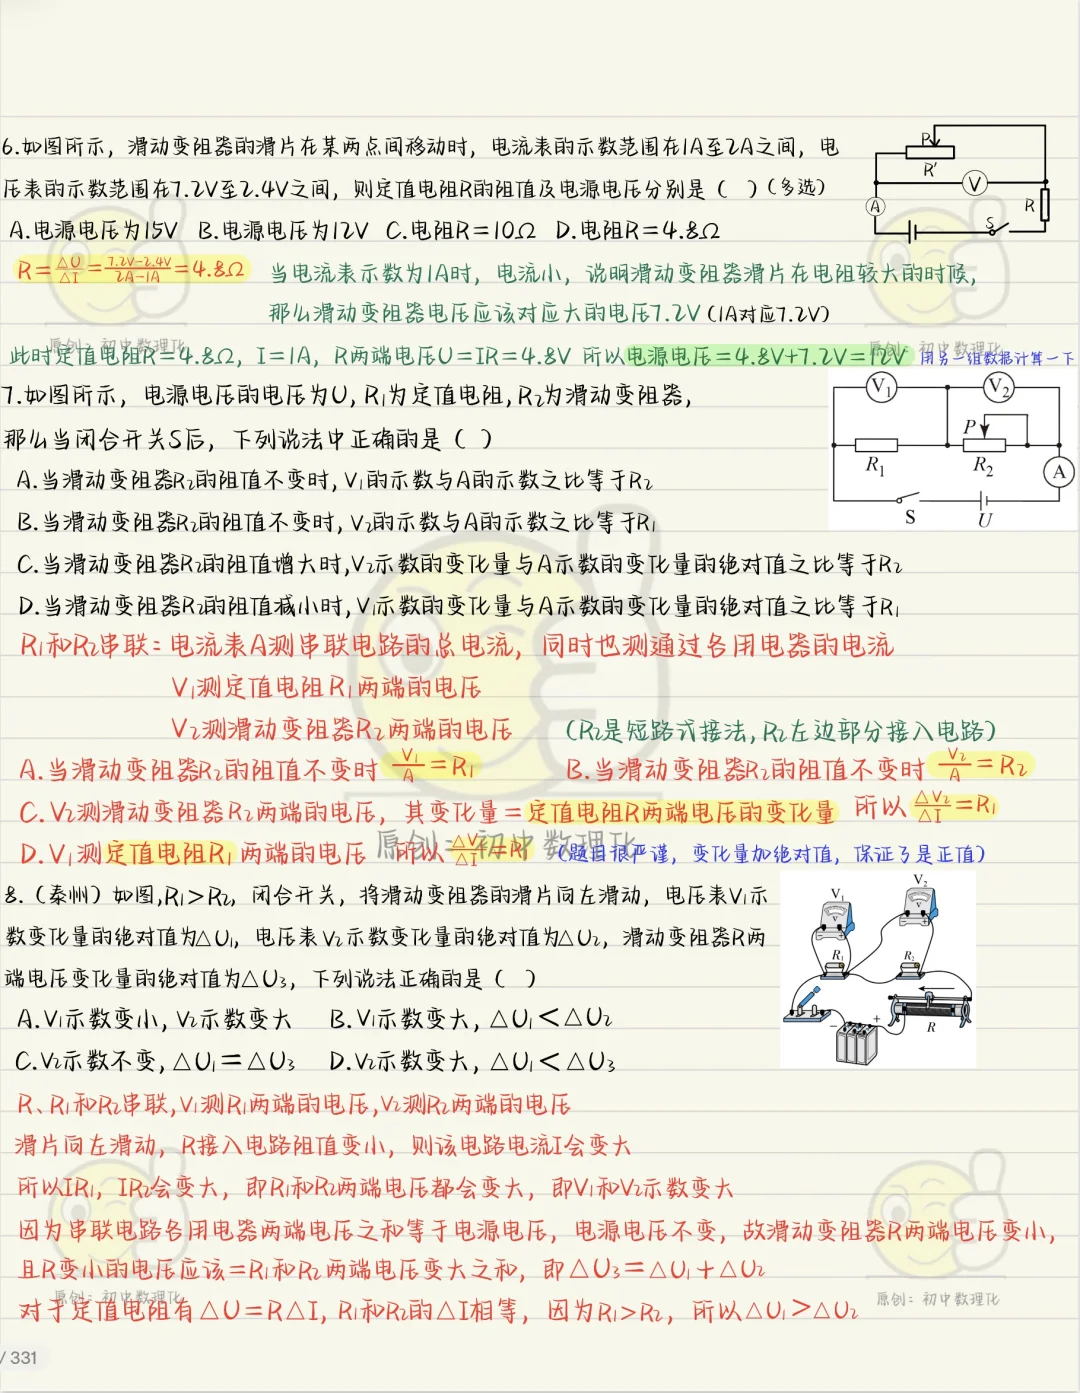 6.如图所示，滑动变阻器的滑片在某两点间移动时，电流表的示数范围在1A至2A之间，电
压表的示数范围在7.2V至2.4V之间，则定值电阻R的阻值及电源电压分别是（ ）（多选）
A.电源电压为15V B.电源电压为12V C.电阻R=10Ω D.电阻R=4.8Ω
P
R'
V
A
R
S
R=△U/△I=7.2V-2.4V/2A-1A=4.8Ω 当电流表示数为1A时，电流小，说明滑动变阻器滑片在电阻较大的时候，
那么滑动变阻器电压应该对应大的电压7.2V（1A对应7.2V）
原创：初中数理化
原创：初中数理化
此时定值电阻R=4.8Ω，I=1A，R两端电压U=IR=4.8V 所以电源电压=4.8V+7.2V=12V 用另一组数据计算一下
7.如图所示，电源电压的电压为U，R₁为定值电阻，R₂为滑动变阻器，
那么当闭合开关S后，下列说法中正确的是（ ）
V₁ V₂
P
R₁ R₂ A
S U
A.当滑动变阻器R₂的阻值不变时，V₁的示数与A的示数之比等于R₂
B.当滑动变阻器R₂的阻值不变时，V₂的示数与A的示数之比等于R₁
C.当滑动变阻器R₂的阻值增大时，V₂示数的变化量与A示数的变化量的绝对值之比等于R₂
D.当滑动变阻器R₂的阻值减小时，V₁示数的变化量与A示数的变化量的绝对值之比等于R₁
R₁和R₂串联：电流表A测串联电路的总电流，同时也测通过各用电器的电流
V₁测定值电阻R₁两端的电压
V₂测滑动变阻器R₂两端的电压 （R₂是短路式接法，R₂左边部分接入电路）
A.当滑动变阻器R₂的阻值不变时 V₁/A=R₁ B.当滑动变阻器R₂的阻值不变时 V₂/A=R₂
C.V₂测滑动变阻器R₂两端的电压，其变化量=定值电阻R两端电压的变化量 所以△V₂/△I=R₁
原创：初中数理化
D.V₁测定值电阻R₁两端的电压 所以△V₁/△I=R₁ （题目很严谨，变化量加绝对值，保证了是正值）
8.（泰州）如图，R₁>R₂，闭合开关，将滑动变阻器的滑片向左滑动，电压表V₁示
数变化量的绝对值为△U₁，电压表V₂示数变化量的绝对值为△U₂，滑动变阻器R两
端电压变化量的绝对值为△U₃，下列说法正确的是（ ）
A.V₁示数变小，V₂示数变大 B.V₁示数变大，△U₁<△U₂
C.V₂示数不变，△U₁=△U₃ D.V₂示数变大，△U₁<△U₃
V₁ V₂
R₁ R₂
R
− +
R、R₁和R₂串联，V₁测R₁两端的电压，V₂测R₂两端的电压
滑片向左滑动，R接入电路阻值变小，则该电路电流I会变大
所以IR₁，IR₂会变大，即R₁和R₂两端电压都会变大，即V₁和V₂示数变大
因为串联电路各用电器两端电压之和等于电源电压，电源电压不变，故滑动变阻器R两端电压变小，
且R变小的电压应该=R₁和R₂两端电压变大之和，即△U₃=△U₁+△U₂
原创：初中数理化
原创：初中数理化
对于定值电阻有△U=R△I，R₁和R₂的△I相等，因为R₁>R₂，所以△U₁>△U₂
/ 331